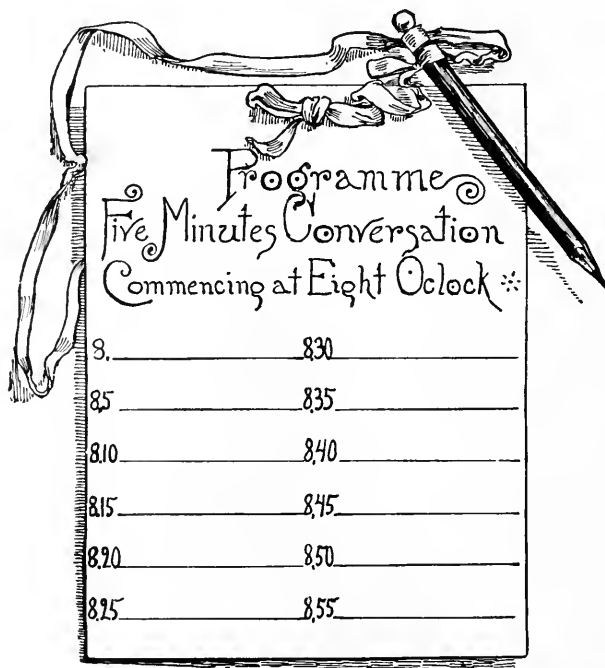 Programme
Five Minutes Conversation
Commencing at Eight Oclock
8. 8,30
8,5 8,35
8,10 8,40
8,15 8,45
8,20 8,50
8,25 8,55